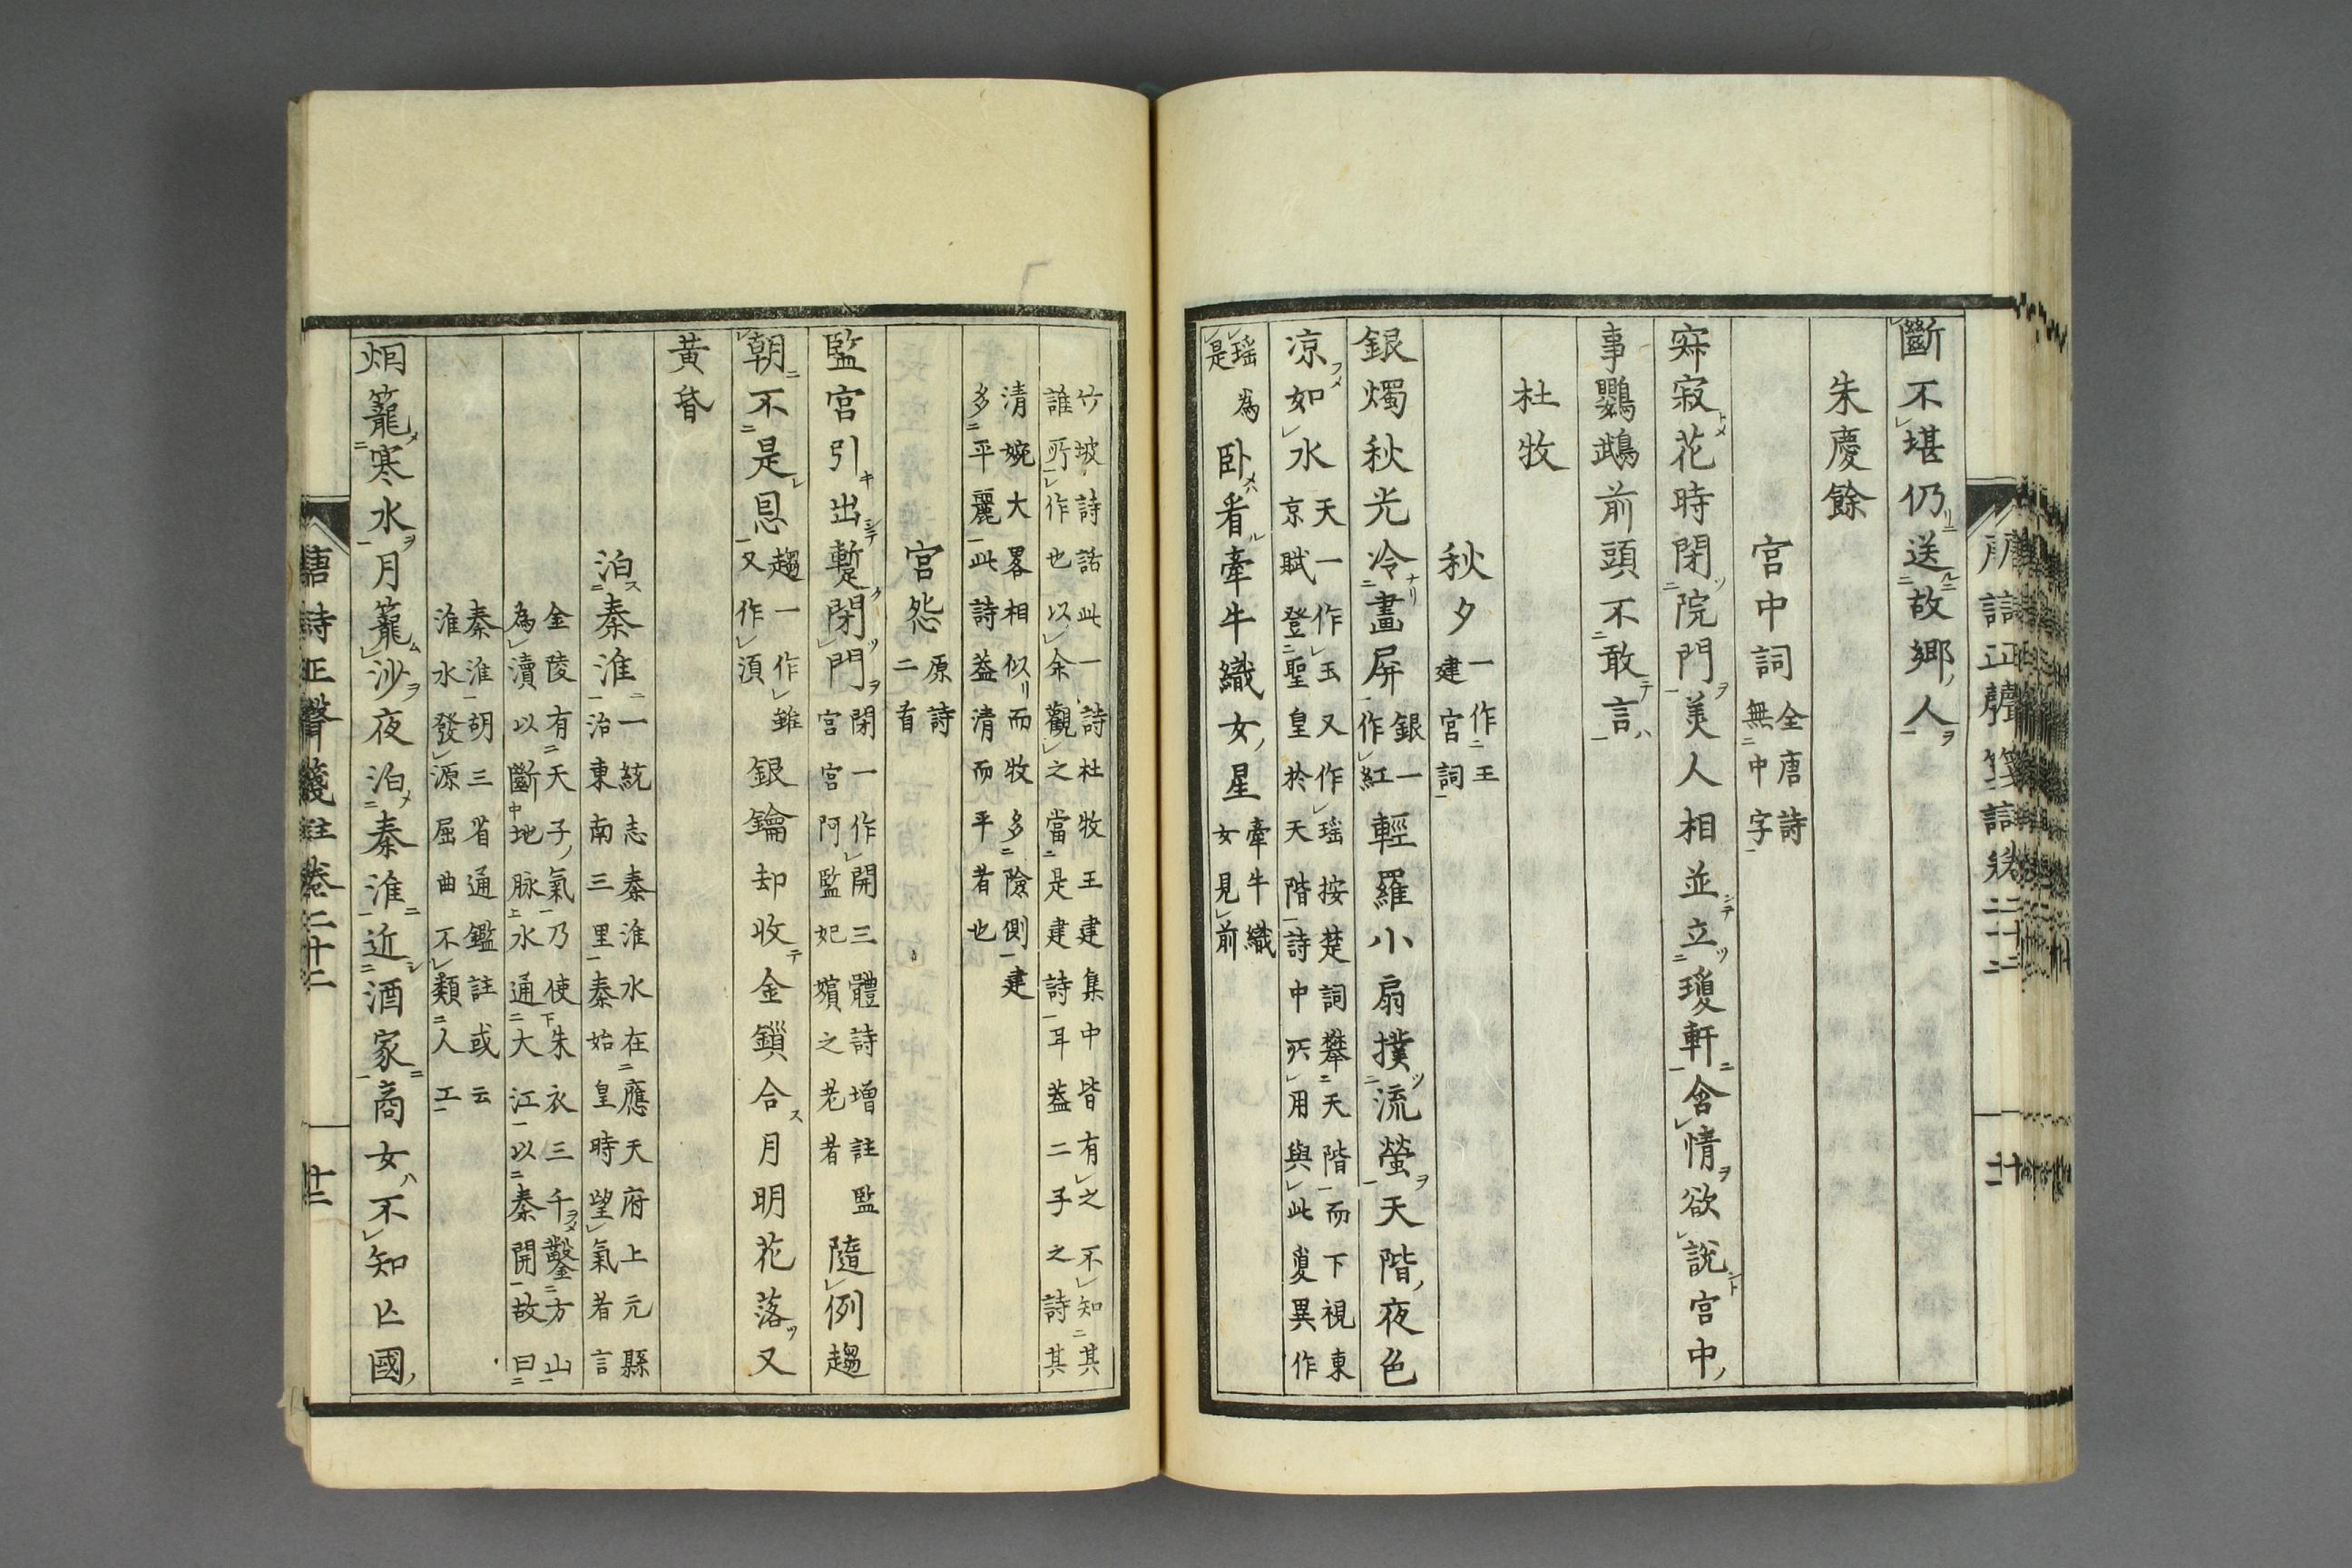 斷不堪仍送故鄉人
朱慶餘
宮中詞全唐詩無中字
寂寂花時閉院門美人相並立瓊軒含情欲說宮中
事鸚鵡前頭不敢言
杜牧
秋夕一作王建宮詞
銀燭秋光冷畫屏銀一作紅輕羅小扇撲流螢天階夜色
凉如水天一作玉又作瑤按楚詞攀天階而下視東京賦登聖皇於天階詩中所用與此敻異作
瑤為是臥看牽牛織女星牽牛織女見前
唐詩正聲箋註卷二十二
竹坡詩話此一詩杜牧王建集中皆有之不知其誰所作也以余觀之當是建詩耳蓋二子之詩其
清婉大畧相似而牧多險側建多平麗此詩蓋清而平者也
宮怨原詩二首
監宮引出蹔閉門閉一作開三體詩增註監宮宮阿監妃嬪之老者隨例趨
朝不是恩趨一作雖又作須銀鑰却收金鎖合月明花落又
黃昏
泊秦淮一統志秦淮水在應天府上元縣治東南三里秦始皇時望氣者言
金陵有天子氣乃使朱衣三千鑿方山為瀆以斷地脉水通大江以秦開故曰
秦淮胡三省通鑑註或云淮水發源屈曲不類人工
烟籠寒水月籠沙夜泊秦淮近酒家商女不知亡國
唐詩正聲箋註卷二十二
十二